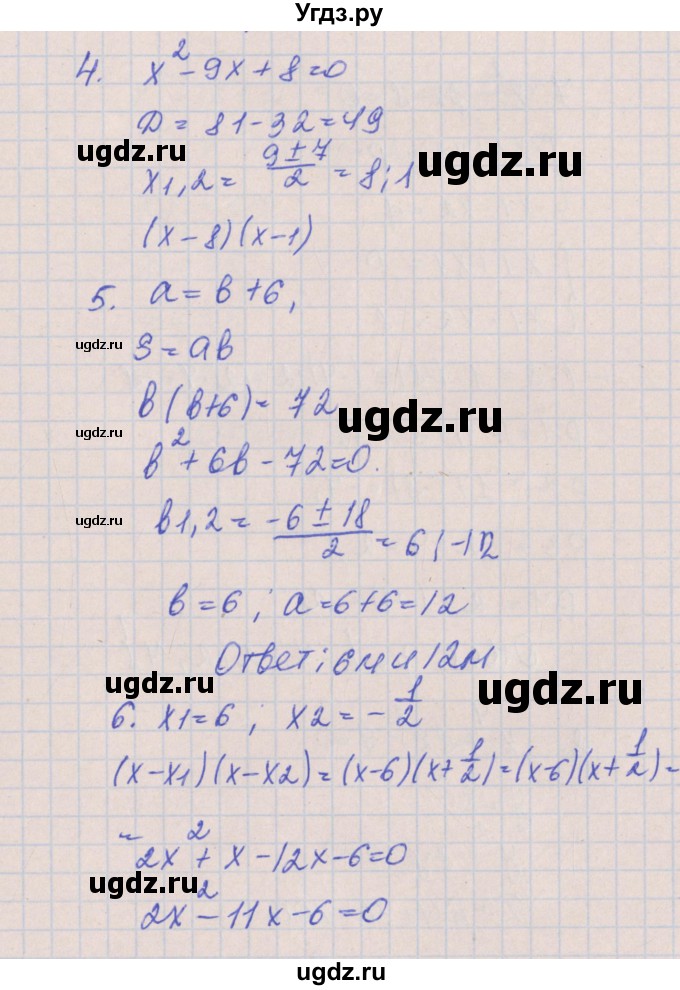 Угдз.ру
4. x² - 9x + 8 = 0
Д = 81 - 32 = 49
ugdz.ru ugdz.ru
x1,2 = (9 ± 7)/2 = 8; 1
(x - 8)(x - 1)
5. a = b + 6,
S = ab
ugdz.ru
b(b+6) = 72
ugdz.ru
ugdz.ru
b² + 6b - 72 = 0.
b1,2 = (-6 ± 18)/2 = 6; -12
ugdz.ru
b = 6; a = 6+6 = 12
Ответ: 6м и 12м
ugdz.ru ugdz.ru
6. x1 = 6; x2 = -1/2
(x-x1)(x-x2) = (x-6)(x+1/2) = (x-6)(x+1/2) =
= 2x² + x - 12x - 6 = 0
ugdz.ru ugdz.ru
2x² - 11x - 6 = 0
ugdz.ru